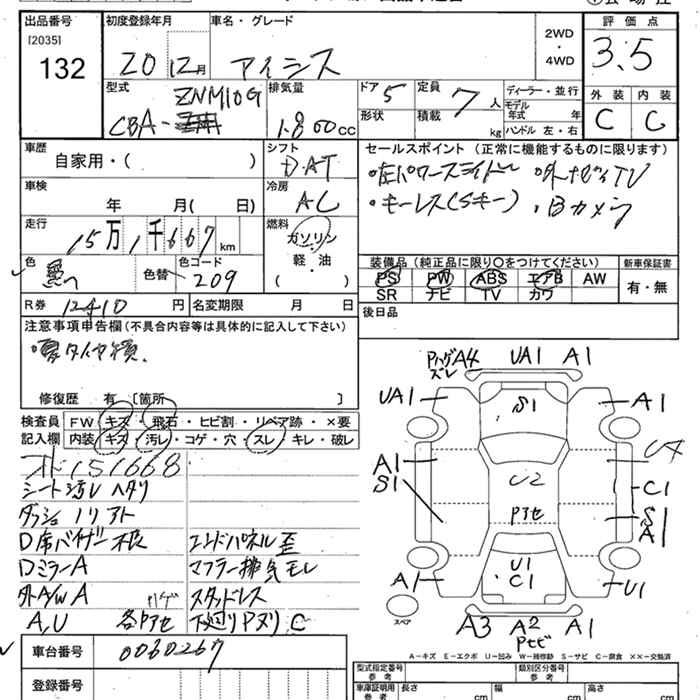 出品番号
[2035]
132
初度登録年月
20 12月
車名・グレード
アイシス
2WD
・
4WD
評価点
3.5
型式
ZNM10G
CBA-
排気量
1.800cc
ドア 5
形状
定員 7人
積載 kg
ディーラー・並行
モデル
年式 年
ハンドル 左・右
外装 内装
C C
車歴
自家用・( )
シフト
D・AT
車検
年 月( 日)
冷房
AC
走行
15万1千667km
燃料
ガソリン
軽・油
( )
色
黒
色替
色コード
209
R券 12410円
名変期限 月 日
セールスポイント (正常に機能するものに限ります)
・左パワースライドドア ・外ナビTV
・キーレス(Sキー) ・Bカメラ
装備品(純正品に限り○をつけてください)
新車保証書
PS PW ABS エアB AW
SR ナビ TV カワ
有・無
後日品
注意事項申告欄(不具合内容等は具体的に記入して下さい)
修復歴 有 〔箇所 〕
検査員
記入欄
FW キズ・飛石・ヒビ割・リペア跡・×要
内装 キズ・汚レ・コゲ・穴・スレ・キレ・破レ
151668
シート汚レ ヘタリ
ダッシュノリアト
D席バイザー不良
Dミラー A
外A/W A ハゲ
A,U 各Pアセ
エンドパネル歪
マフラー排気モレ
スタッドレス
下廻りPヌリ C
車台番号 0060267
登録番号
Pハゲ A4 UA1 A1
ズレ
UA1 S1 A1
A1 U4
S1 U2 C1
Pアセ S1
A1
U1
A1 C1 U1
スペア
A3 A2 A1
Pセビ
A-キズ E-エクボ U-凹み W-補修跡 S-サビ C-腐食 XX-交換済
型式指定番号
参考
類別区分番号
参考
車庫証明用
参考
長さ cm
幅 cm
高さ cm